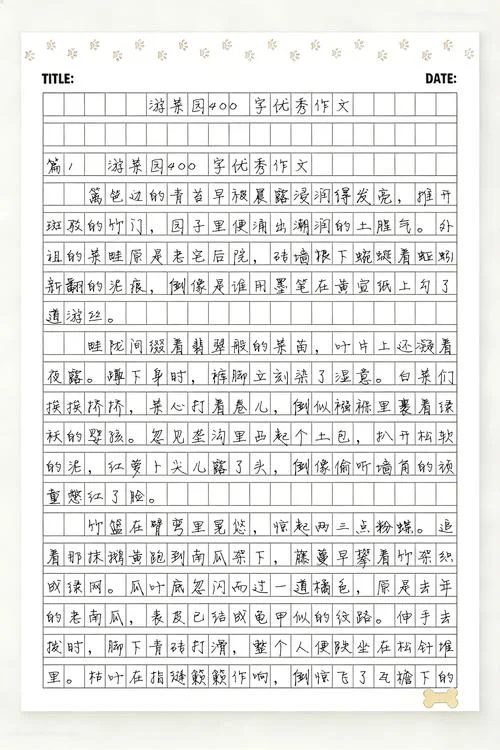 TITLE: DATE:
游菜园400 字优秀作文
篇1 游菜园400 字优秀作文
篱笆边的青苔早被晨露浸润得发亮，推开
斑驳的竹门，园子里便涌出潮润的土腥气。外
祖的菜畦原是老宅后院，砖墙根下蜿蜒着蚯蚓
新翻的泥痕，倒像是谁用墨笔在黄宣纸上勾了
道游丝。
畦陇间缀着翡翠般的菜苗，叶片上还凝着
夜露。蹲下身时，裤脚立刻染了湿意。白菜们
挨挨挤挤，菜心打着卷儿，倒似襁褓里裹着绿
袄的婴孩。忽见垄沟里凸起个土包，扒开松软
的泥，红萝卜尖儿露了头，倒像偷听墙角的顽
童憋红了脸。
竹篮在臂弯里晃悠，惊起两三点粉蝶。追
着那抹鹅黄跑到南瓜架下，藤蔓早攀着竹架织
成绿网。瓜叶底忽闪而过一道橘色，原是去年
的老南瓜，表皮已结成龟甲似的纹路。伸手去
拔时，脚下青砖打滑，整个人便跌坐在松针堆
里。枯叶在指缝簌簌作响，倒惊飞了瓦檐下的